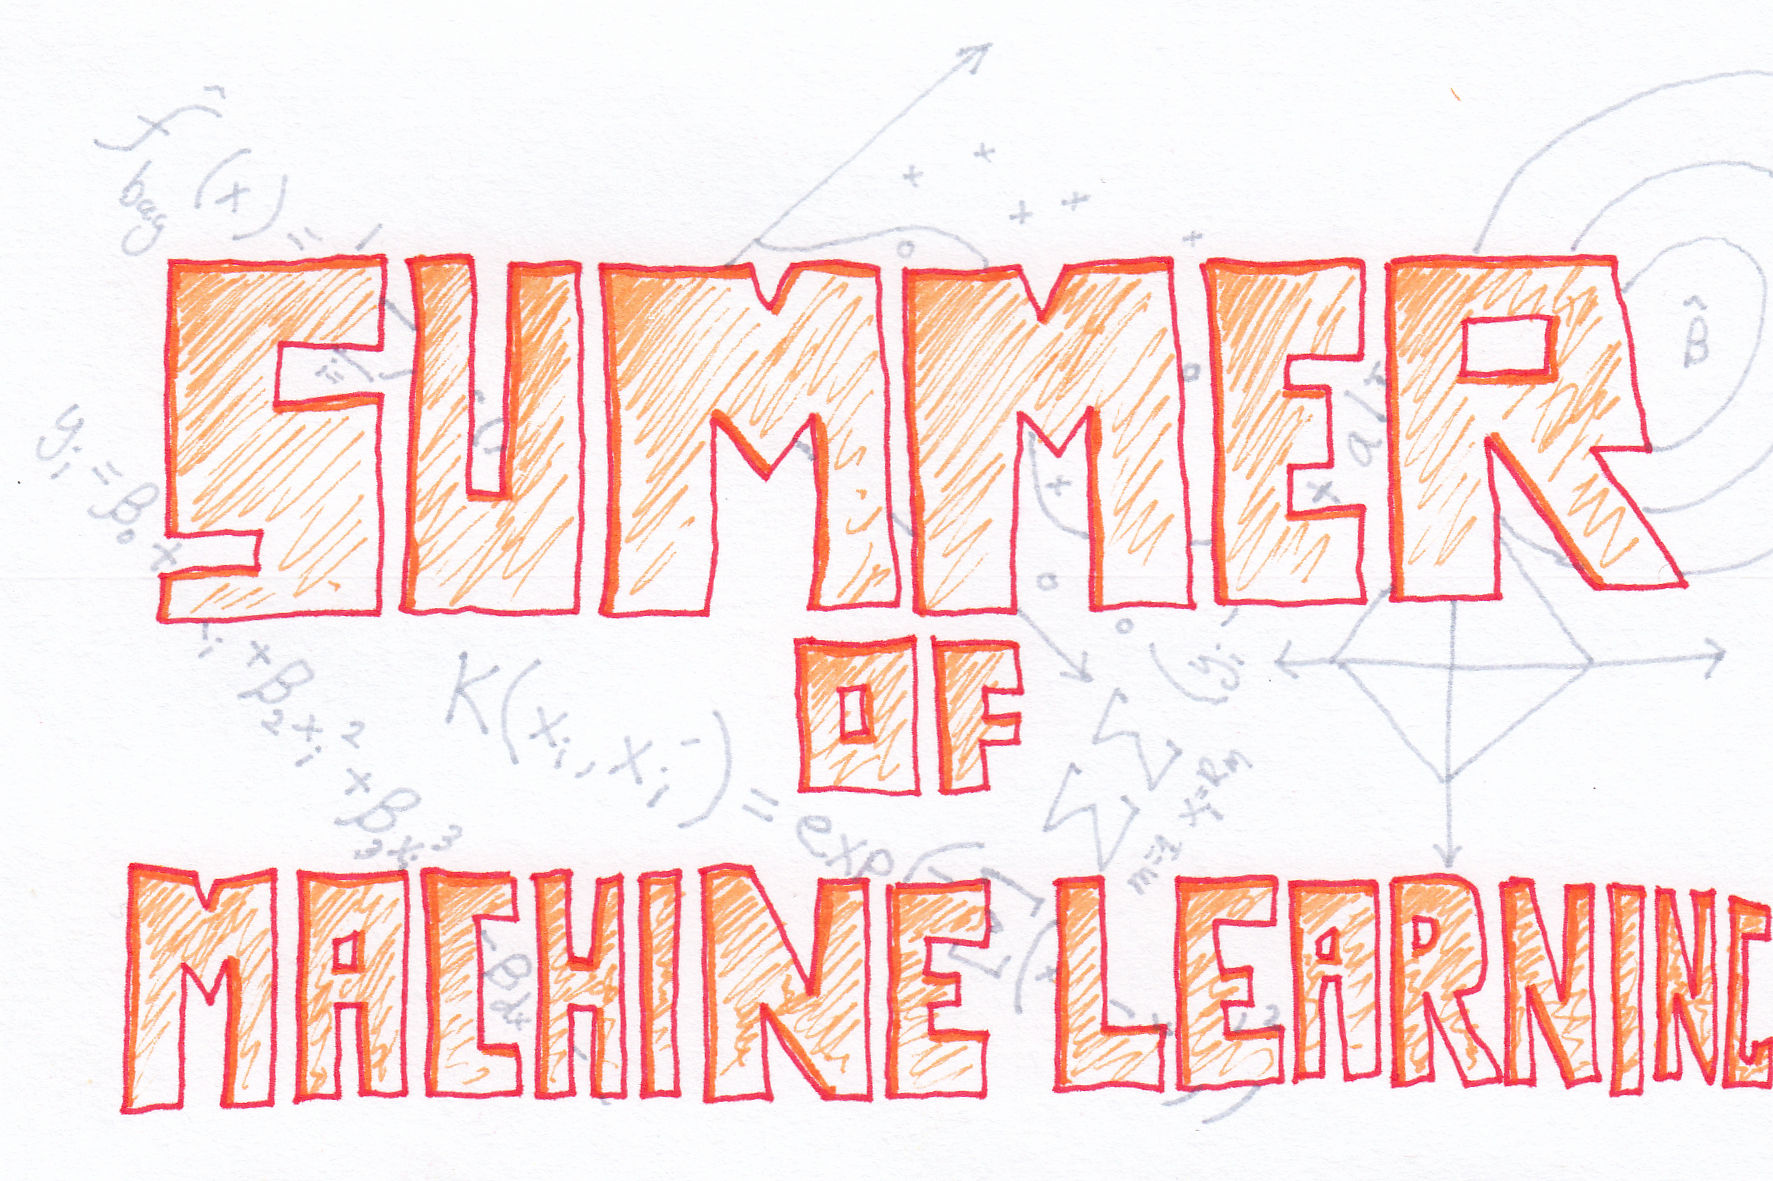 SUMMER
OF
MACHINE LEARNING
f̂ bag (x) = 1
yᵢ = β₀ x
ᵢ + β₂xᵢ² + β₃xᵢ³
K(xᵢ, xᵢ
) = exp(-
(yᵢ
m=1 xᵢ=Rm
β̂